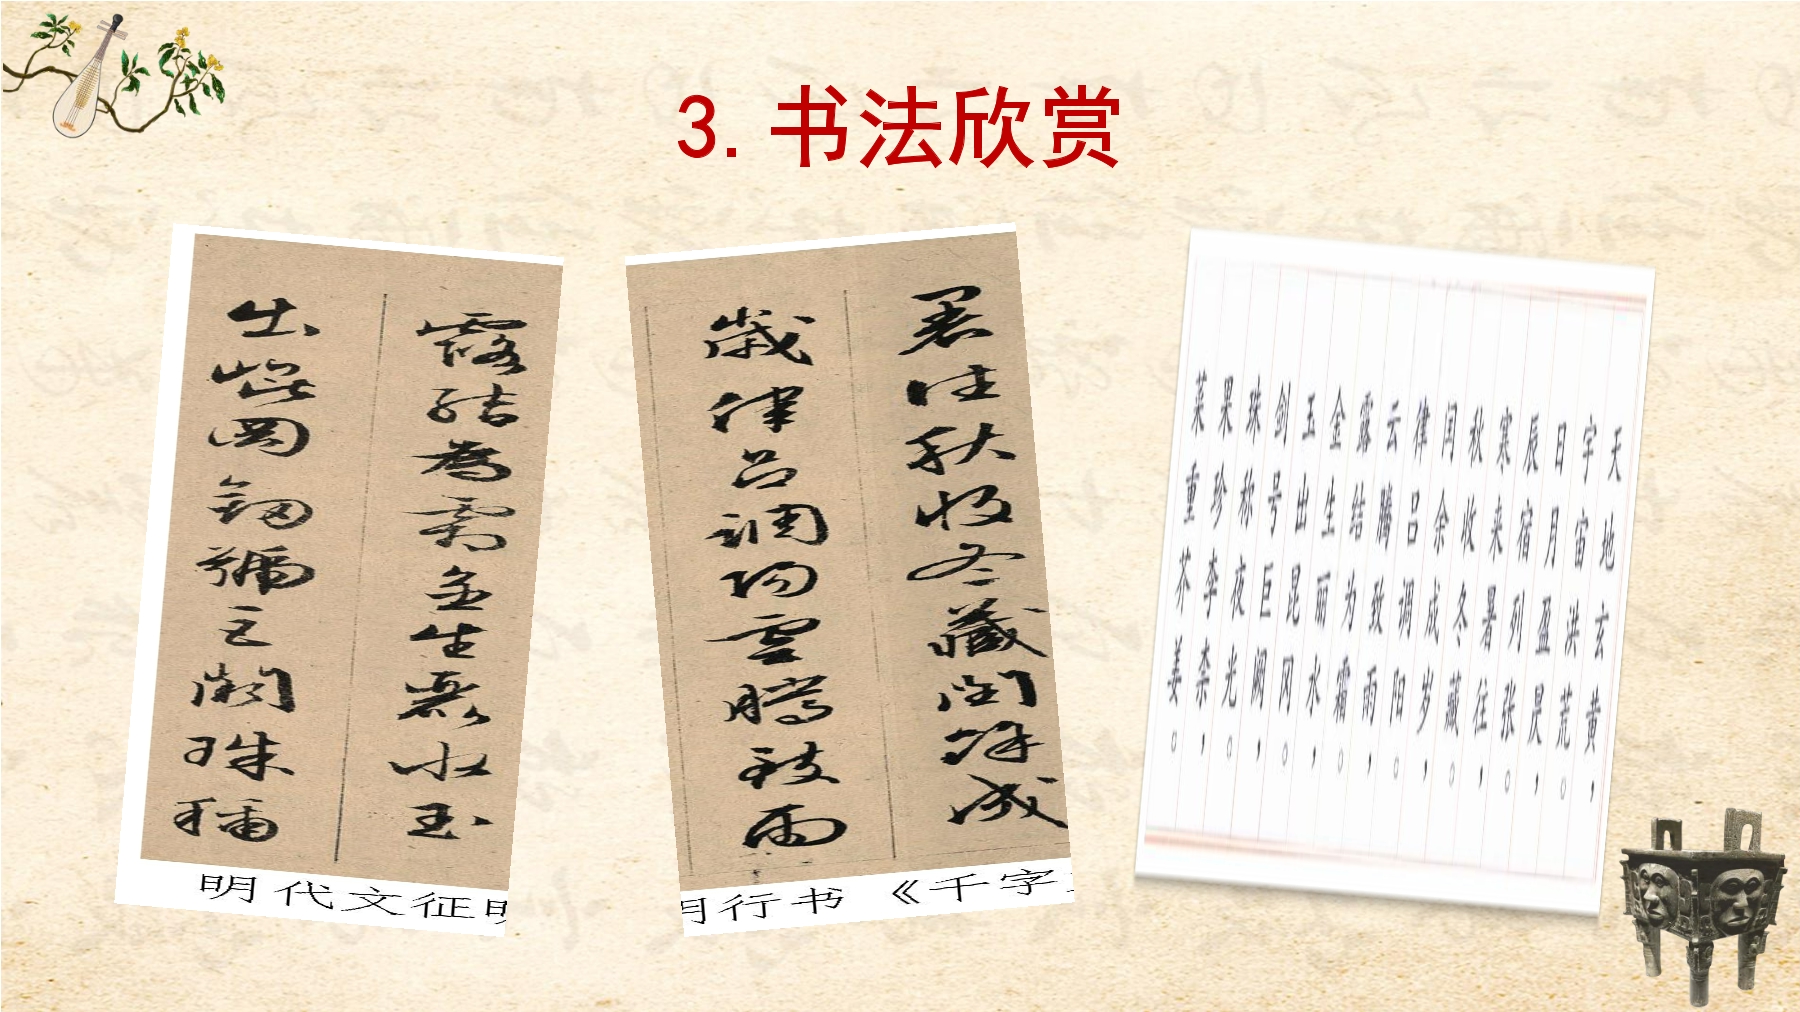 3.书法欣赏
露结為霜金生麗水玉
出崐岡劍號巨闕珠稱
明代文征明
暑往秋收冬藏閏餘成
歲律吕調陽雲騰致雨
明行书《千字
天地玄黄，
宇宙洪荒。
日月盈昃，
辰宿列张。
寒来暑往，
秋收冬藏。
闰余成岁，
律吕调阳。
云腾致雨，
露结为霜。
金生丽水，
玉出昆冈。
剑号巨阙，
珠称夜光。
果珍李柰，
菜重芥姜。